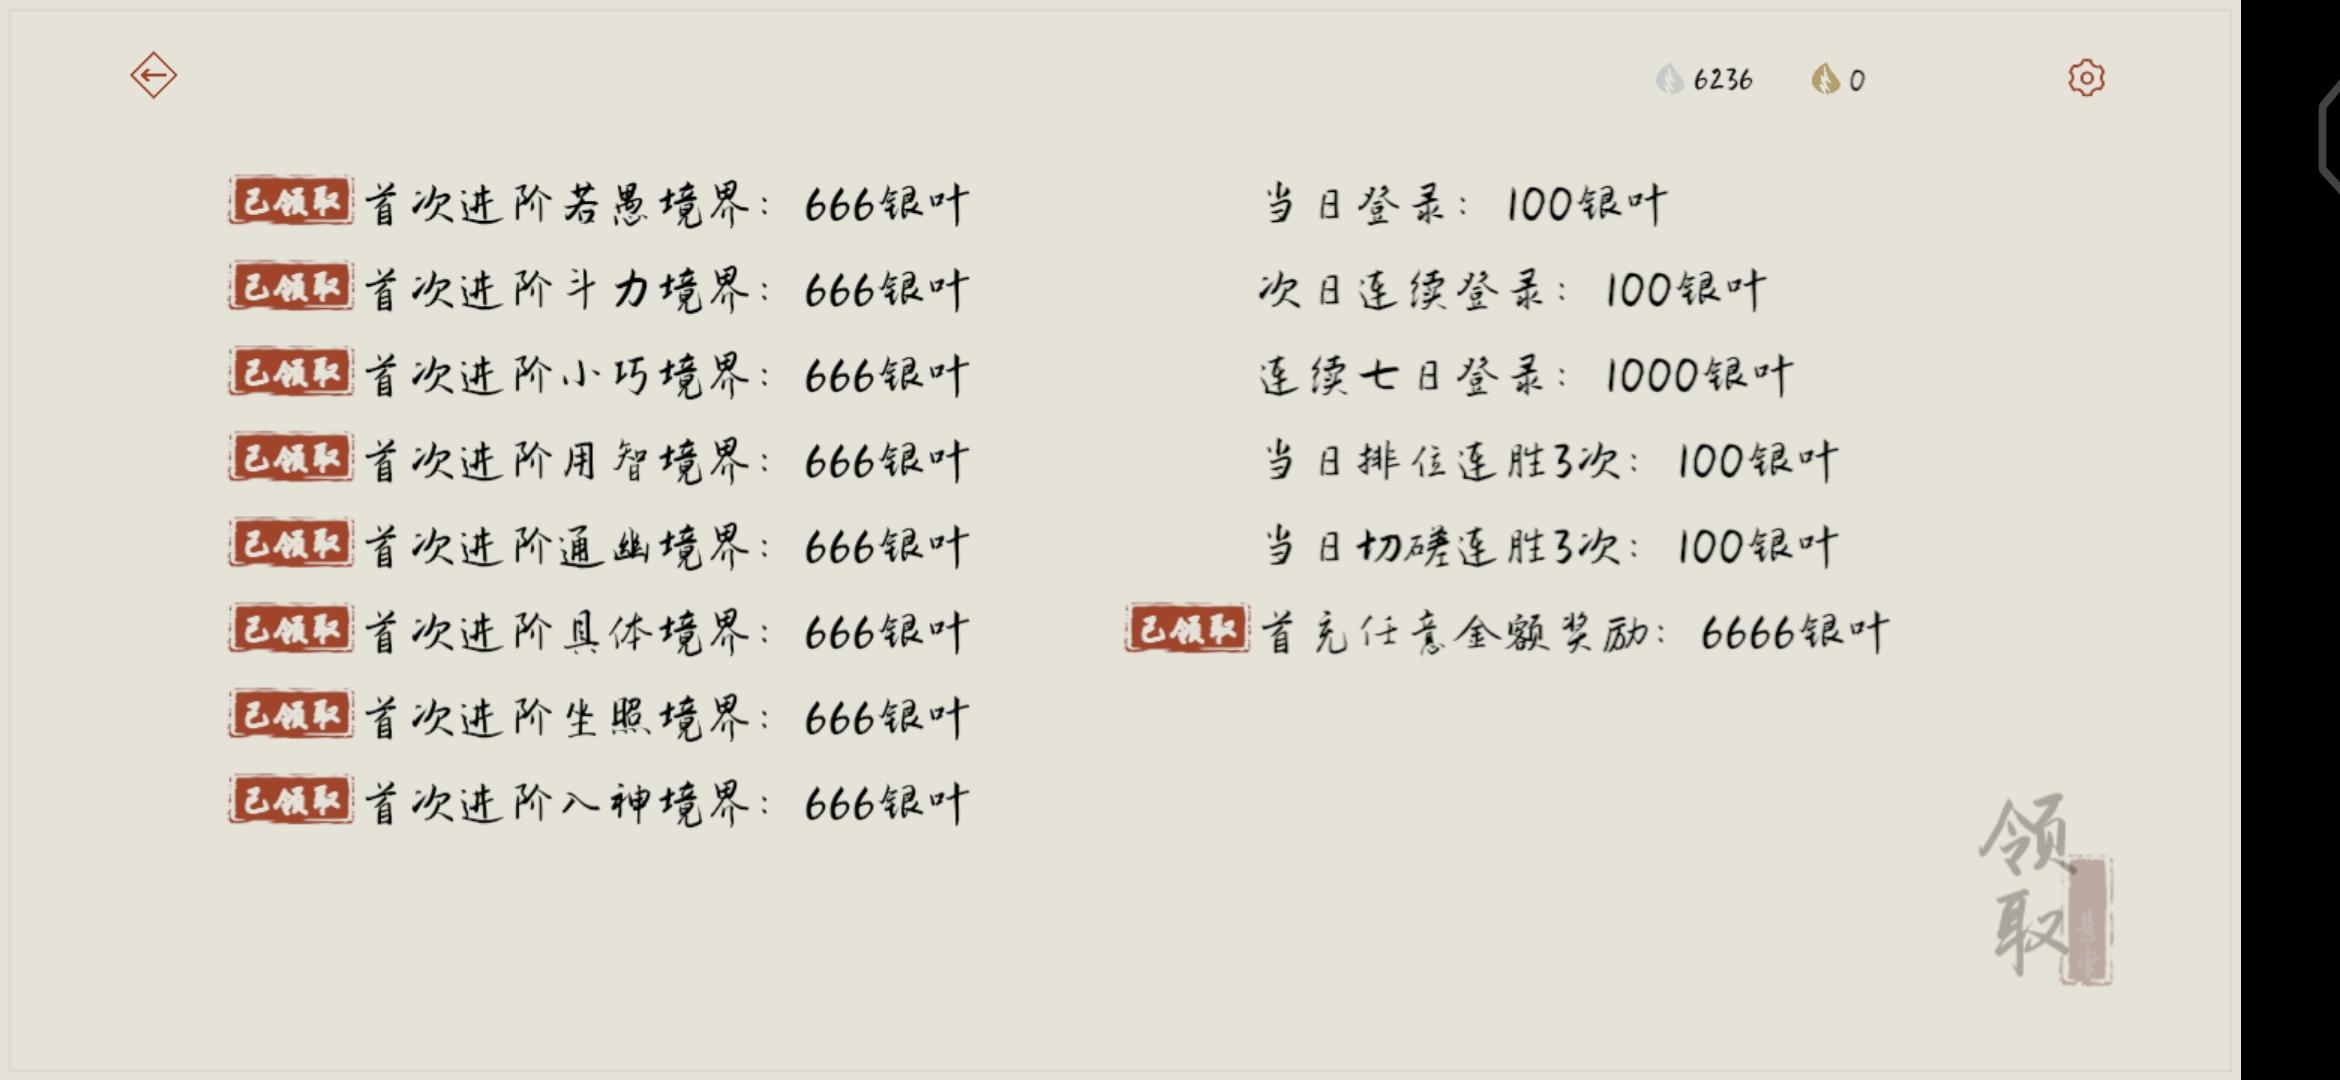 6236 0
已领取 首次进阶若愚境界：666银叶
已领取 首次进阶斗力境界：666银叶
已领取 首次进阶小巧境界：666银叶
已领取 首次进阶用智境界：666银叶
已领取 首次进阶通幽境界：666银叶
已领取 首次进阶具体境界：666银叶
已领取 首次进阶坐照境界：666银叶
已领取 首次进阶入神境界：666银叶
当日登录：100银叶
次日连续登录：100银叶
连续七日登录：1000银叶
当日排位连胜3次：100银叶
当日切磋连胜3次：100银叶
已领取 首充任意金额奖励：6666银叶
领取